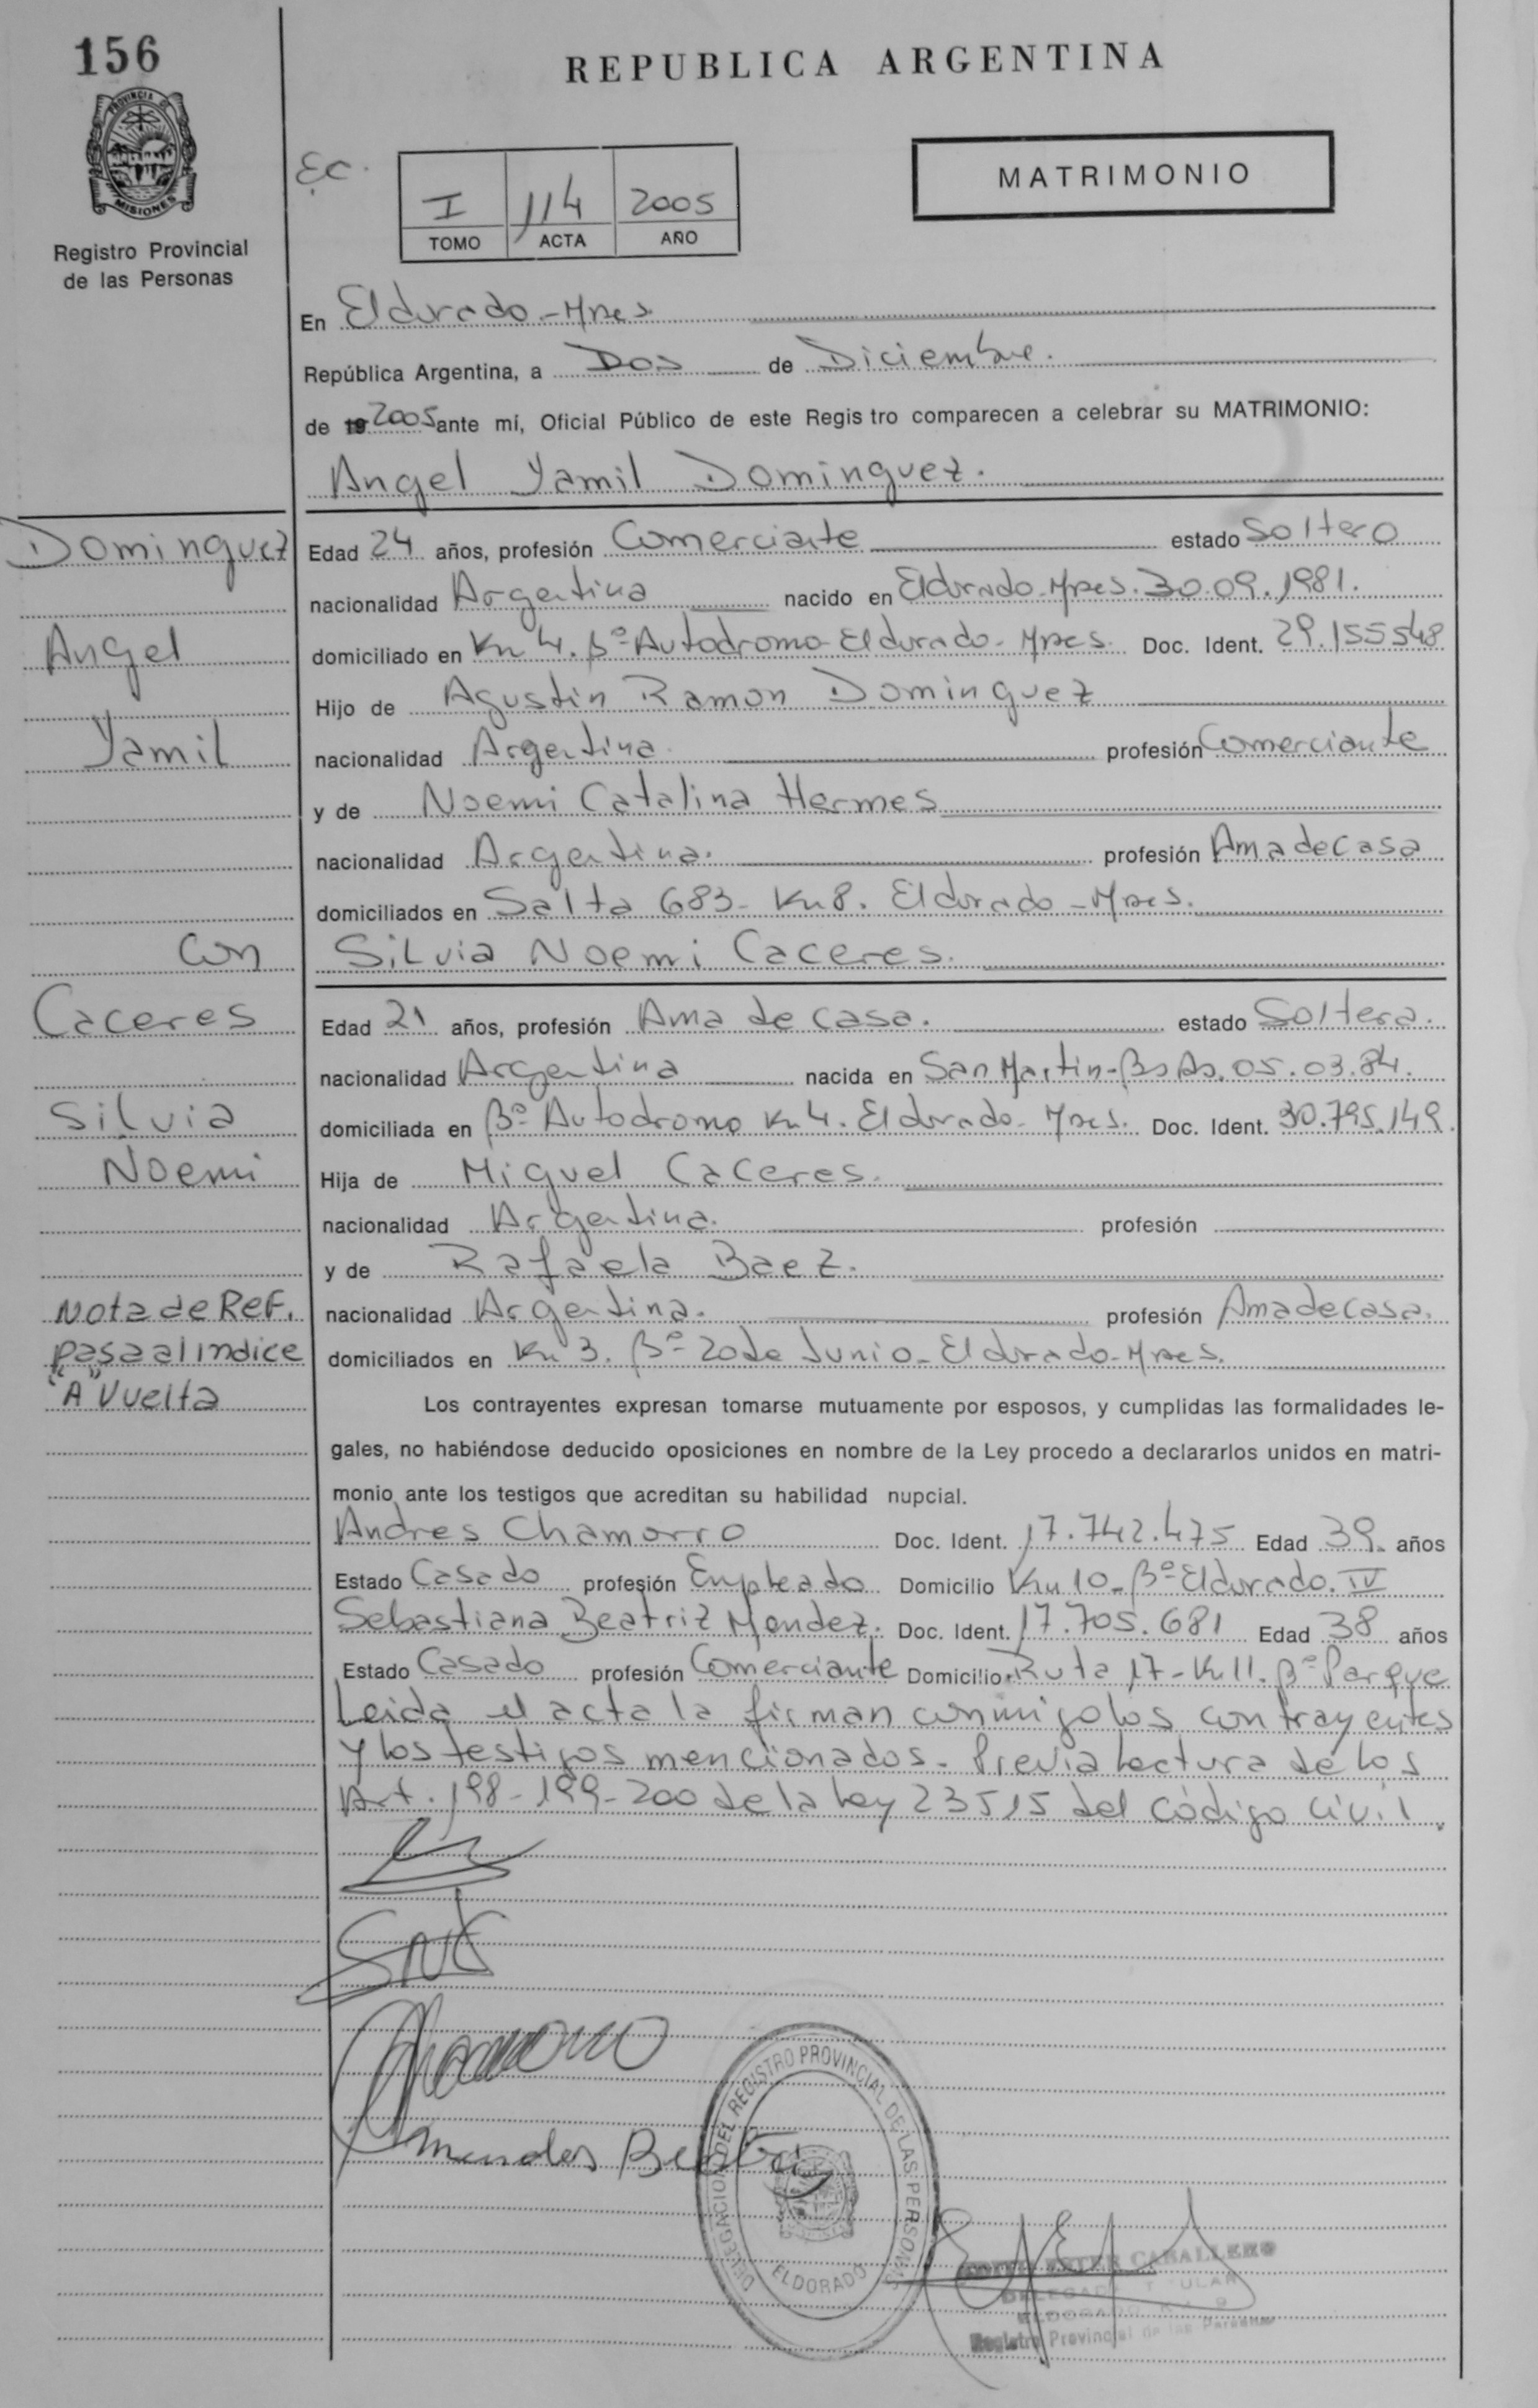 156
REPUBLICA ARGENTINA
PROVINCIA DE
MISIONES
Registro Provincial
de las Personas
E.C.
I 114 2005
TOMO ACTA AÑO
MATRIMONIO
En Eldorado - Mnes.
República Argentina, a Dos de Diciembre.
de 19 2005 ante mí, Oficial Público de este Regis tro comparecen a celebrar su MATRIMONIO:
Angel Yamil Dominguez.
Dominguez
Angel
Yamil
Edad 24 años, profesión Comerciante estado Soltero
nacionalidad Argentina nacido en Eldorado-Mnes. 30.09.1981.
domiciliado en Km 4. Bº Autodromo-Eldorado-Mnes. Doc. Ident. 29.155548
Hijo de Agustin Ramon Dominguez
nacionalidad Argentina. profesión Comerciante
y de Noemi Catalina Hermes
nacionalidad Argentina. profesión Ama de casa
domiciliados en Salta 683- Km 8. Eldorado-Mnes.
con
Silvia Noemi Caceres.
Caceres
Silvia
Noemi
Edad 21 años, profesión Ama de casa. estado Soltera.
nacionalidad Argentina nacida en San Martin-Bs As. 05.03.84.
domiciliada en Bº Autodromo Km 4. Eldorado-Mnes. Doc. Ident. 30.795.149.
Hija de Miguel Caceres.
nacionalidad Argentina. profesión
y de Rafaela Baez.
nacionalidad Argentina. profesión Ama de casa.
domiciliados en Km 3. Bº 20 de Junio-Eldorado-Mnes.
Nota de Ref.
pasa al indice
"A" Vuelta
Los contrayentes expresan tomarse mutuamente por esposos, y cumplidas las formalidades le-
gales, no habiéndose deducido oposiciones en nombre de la Ley procedo a declararlos unidos en matri-
monio ante los testigos que acreditan su habilidad nupcial.
Andres Chamorro Doc. Ident. 17.742.475 Edad 39 años
Estado Casado profesión Empleado Domicilio Km 10-Bº Eldorado. IV
Sebastiana Beatriz Mendez. Doc. Ident. 17.705.681 Edad 38 años
Estado Casado profesión Comerciante Domicilio Ruta 17-Km 11. Bº Parque
Leida el acta la firman conmigo los contrayentes
y los testigos mencionados. Previa lectura de los
Art. 198-199-200 de la ley 23515 del código civil.
SNC
Chamorro
Mendes Beatriz
DELEGACION DEL REGISTRO PROVINCIAL DE LAS PERSONAS
ELDORADO
ESTER CABALLERO
DELEGADA TITULAR
ELDORADO KM 9
Registro Provincial de las Personas